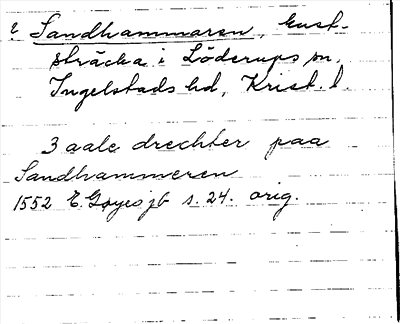 Sandhammaren, kust-
sträcka i Löderups sn,
Ingelstads hd, Krist. l.
3 aale drechter paa
Sandhammeren
1552 E. Goyes jb s. 24. orig.